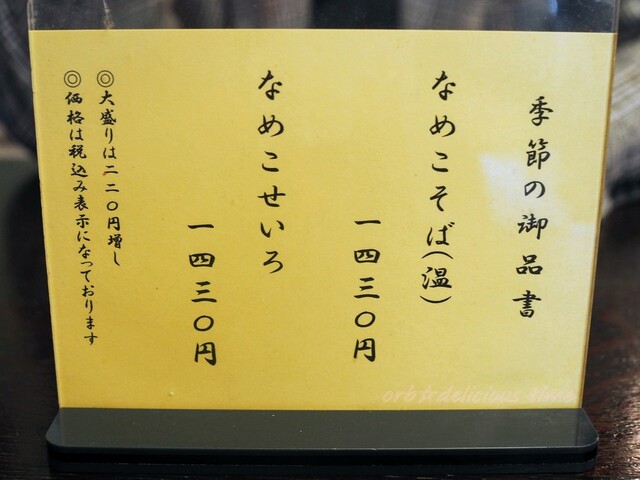 季節の御品書
なめこそば(温)
一四三〇円
なめこせいろ
一四三〇円
◎大盛りは二二〇円増し
◎価格は税込み表示になっております
orb☆delicious